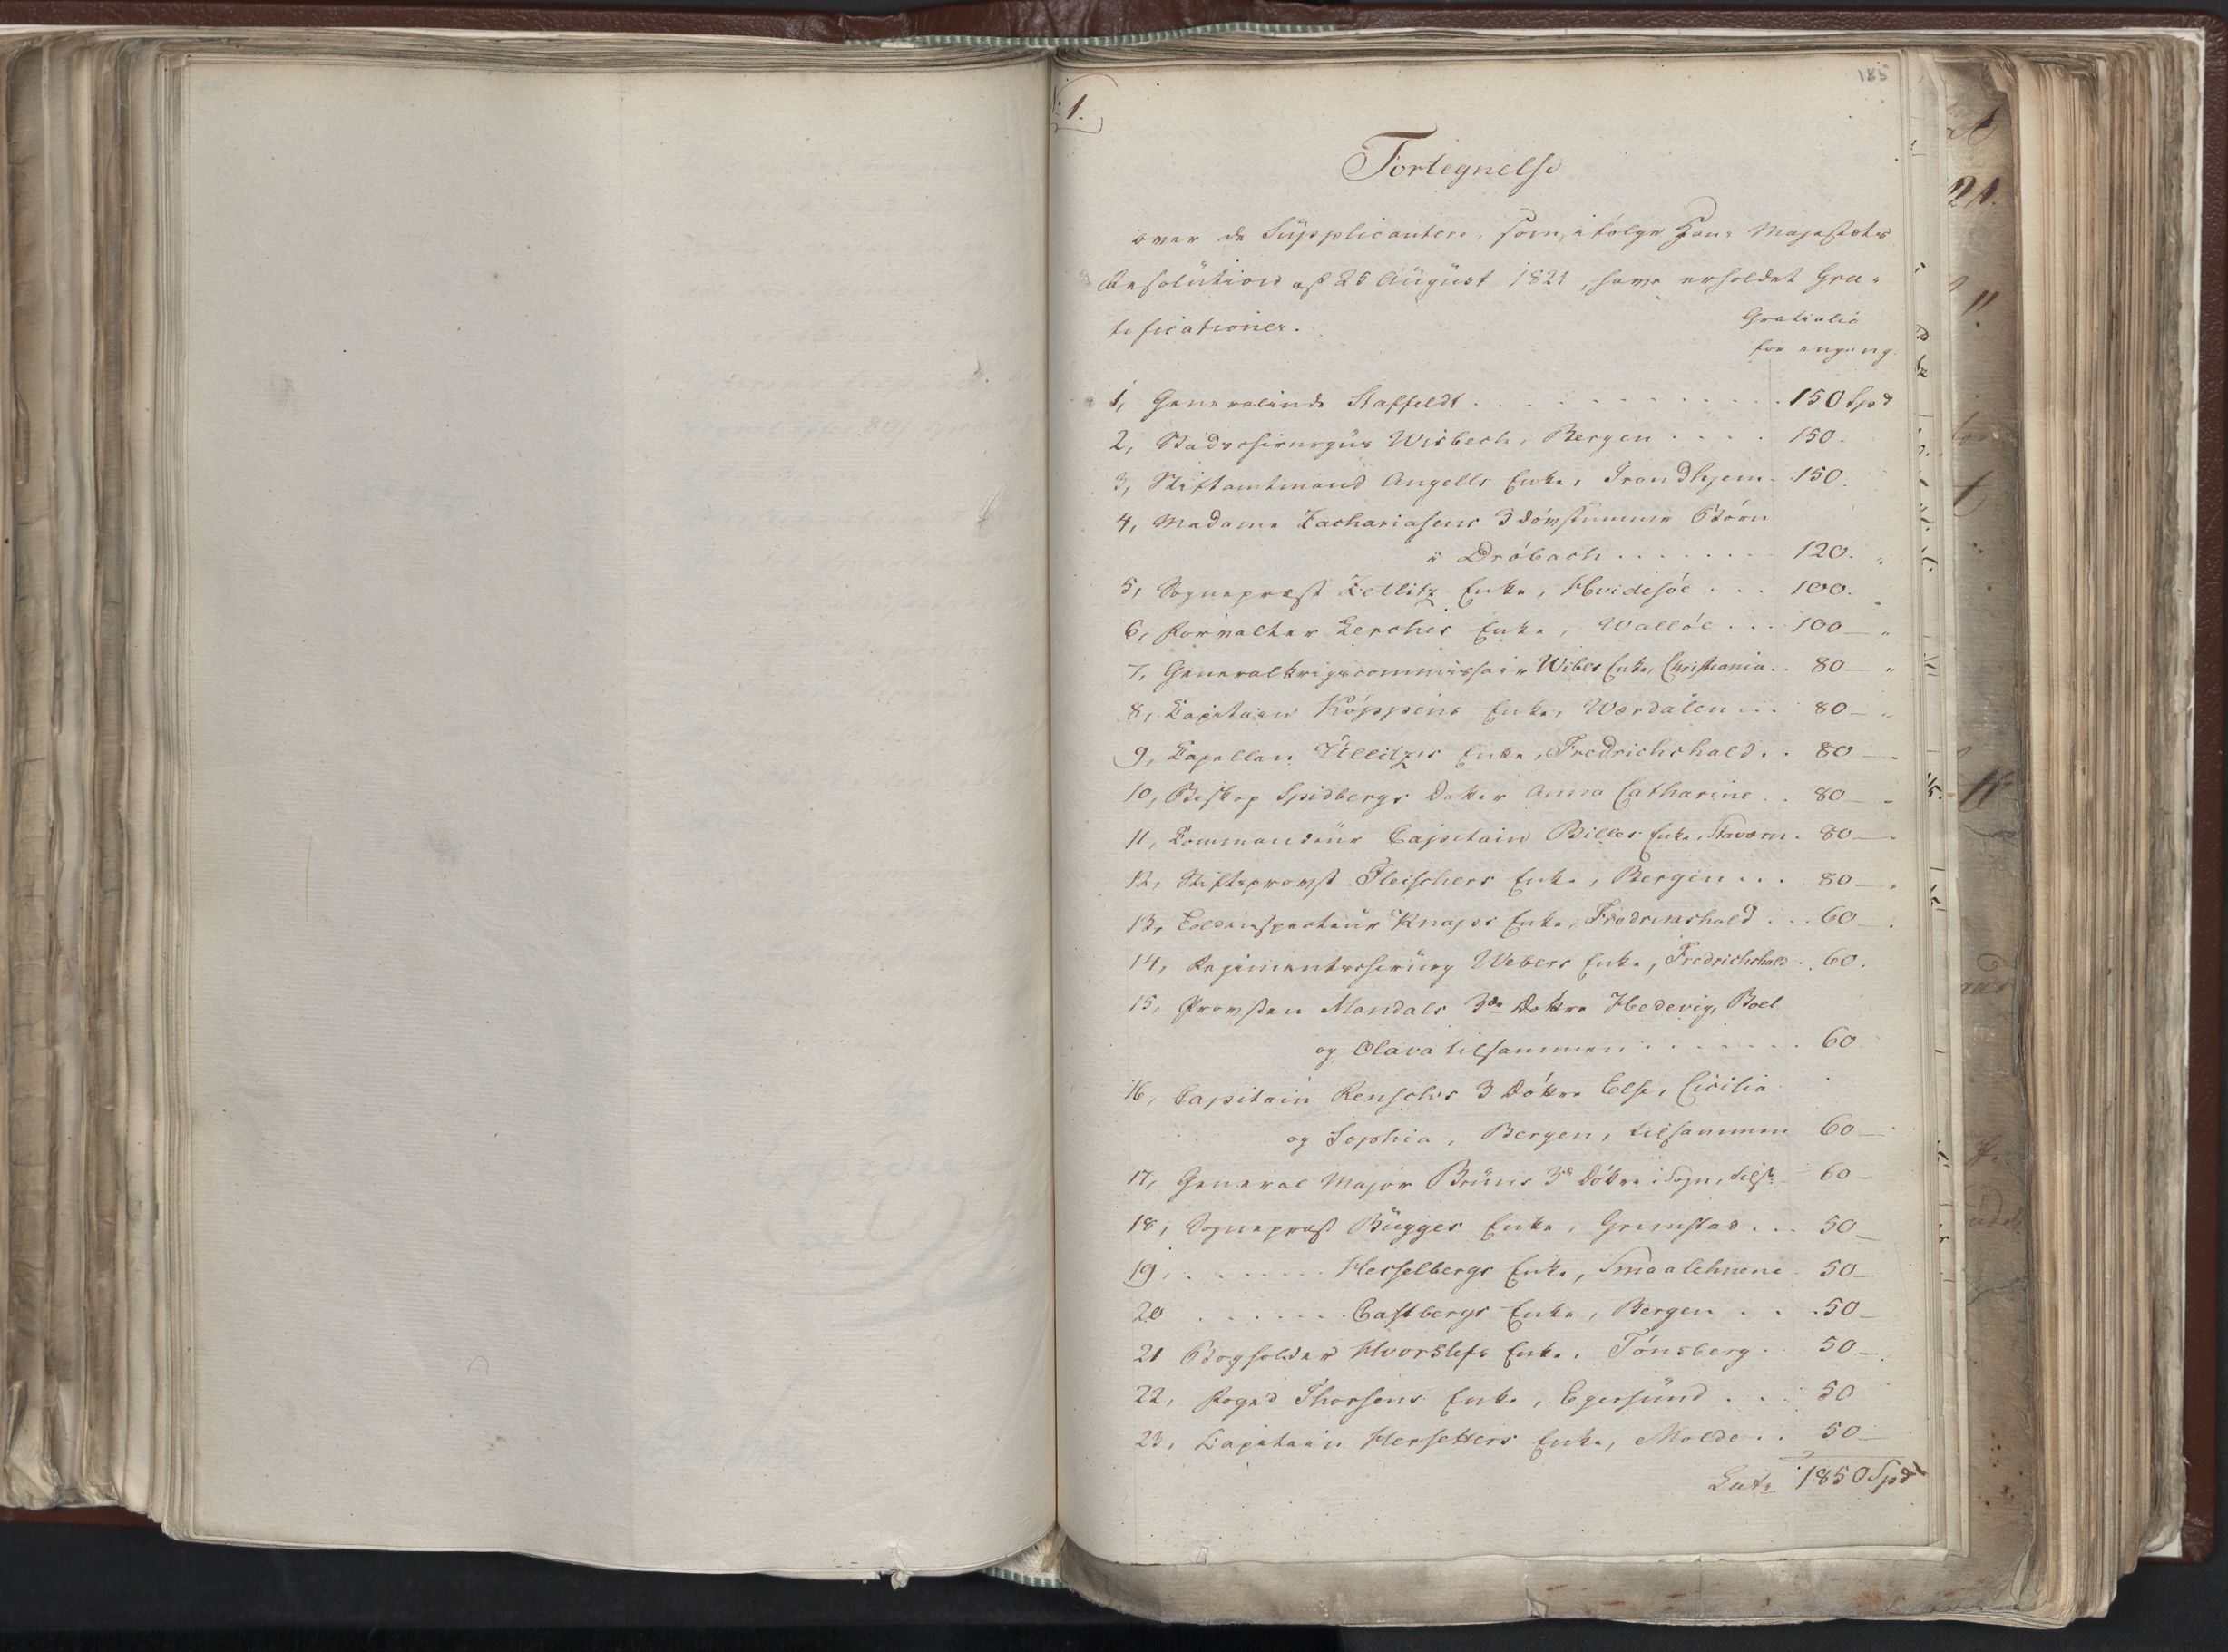 185
1.
Fortegnelse
over de Supplicantere, som, ifølge Hans Majestæts
Resolution af 25 August 1821, have erholdet Gra-
tificationer.
Gratialia
for engang.
1, Generalinde Staffeldt . . . . . 150 Spd
2, Stadschirurgus Wisbech, Bergen . . . . 150.
3, Stiftamtmand Angells Enke, Trondhjem . 150.
4, Madame Zachariasens 3 døvstumme Børn
i Drøbach . . . . . . . 120. "
5, Sognepræst Zetlitz Enke, Hvidesøe . . . 100. "
6, Forvalter Lerches Enke, Walløe . . . 100 — "
7, Generalkrigscommissair Wibes Enke, Christiania . . 80 — "
8, Kapitain Køppens Enke, Wærdalen . . . 80 — "
9, Kapellan Ülleitzes Enke, Fredrichshald . . 80 —
10, Biskop Spidbergs Datter Anna Catharine . . 80 —
11, Kommandeur Capitain Billes Enke, Staværn . 80 —
12, Stiftsprovst Fleischers Enke, Bergen . . . 80 —
13, Toldinspecteur Knaps Enke, Fredrikshald . . . 60 —
14, Regimentschirurg Webers Enke, Fredrichshald . . 60.
15, Provsten Mandals 3de Døttre Hedevig, Boel
og Olava tilsammen . . . . . . . 60
16, Capitain Renschs 3 Døttre Else, Cicilia
og Sophia, Bergen, tilsammen 60 —
17, General Major Brüns 3de Døttre i Sogn, tils: 60 —
18, Sognepræst Bügges Enke, Grimstad . . . 50 —
19, . . . . . . . Hesselbergs Enke, Smaalehnene . 50 —
20 . . . . . . . Castbergs Enke, Bergen . . . 50 —
21 Bogholder Hvorslefs Enke, Tønsberg . 50 —
22, Foged Thorsens Enke, Egersund . . . 50
23, Kapitain Hersetters Enke, Molde . . 50 —
Lats 1850 Spd